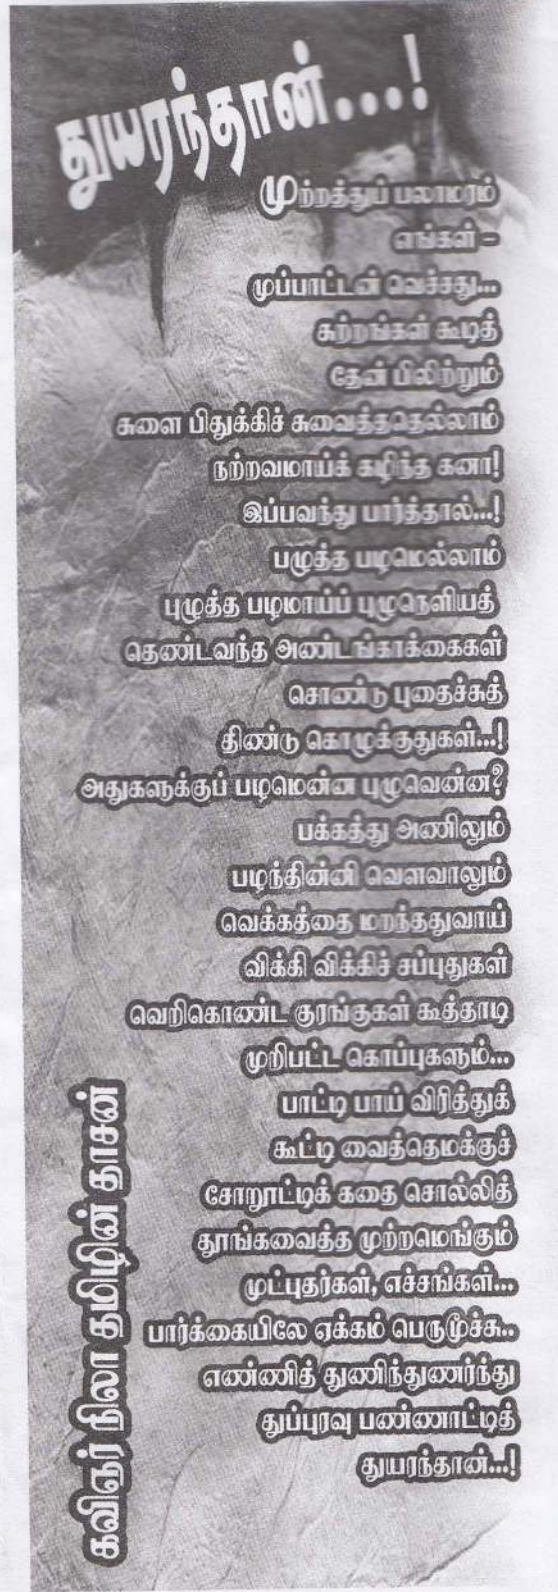 துயரந்தான்...!
முற்றத்துப் பலாமரம்
எங்கள் -
முப்பாட்டன் வெச்சது...
சுற்றங்கள் கூடித்
தேன் பிலிற்றும்
சுளை பிதுக்கிச் சுவைத்ததெல்லாம்
நற்றவமாய்க் கழிந்த கனா!
இப்பவந்து பார்த்தால்...!
பழுத்த பழமெல்லாம்
புழுத்த பழமாய்ப் புழுநெளியத்
தெண்டவந்த அண்டங்காக்கைகள்
சொண்டு புதைச்சுத்
திண்டு கொழுக்குதுகள்...!
அதுகளுக்குப் பழமென்ன புழுவென்ன?
பக்கத்து அணிலும்
பழந்தின்னி வௌவாலும்
வெக்கத்தை மறந்ததுவாய்
விக்கி விக்கிச் சப்புதுகள்
வெறிகொண்ட குரங்குகள் கூத்தாடி
முறிபட்ட கொப்புகளும்...
பாட்டி பாய் விரித்துக்
கூட்டி வைத்தெமக்குச்
சோறூட்டிக் கதை சொல்லித்
தூங்கவைத்த முற்றமெங்கும்
முட்புதர்கள், எச்சங்கள்...
பார்க்கையிலே ஏக்கம் பெருமூச்சு..
எண்ணித் துணிந்துணர்ந்து
துப்புரவு பண்ணாட்டித்
துயரந்தான்...!
கவிஞர் நிலா தமிழின் தாசன்